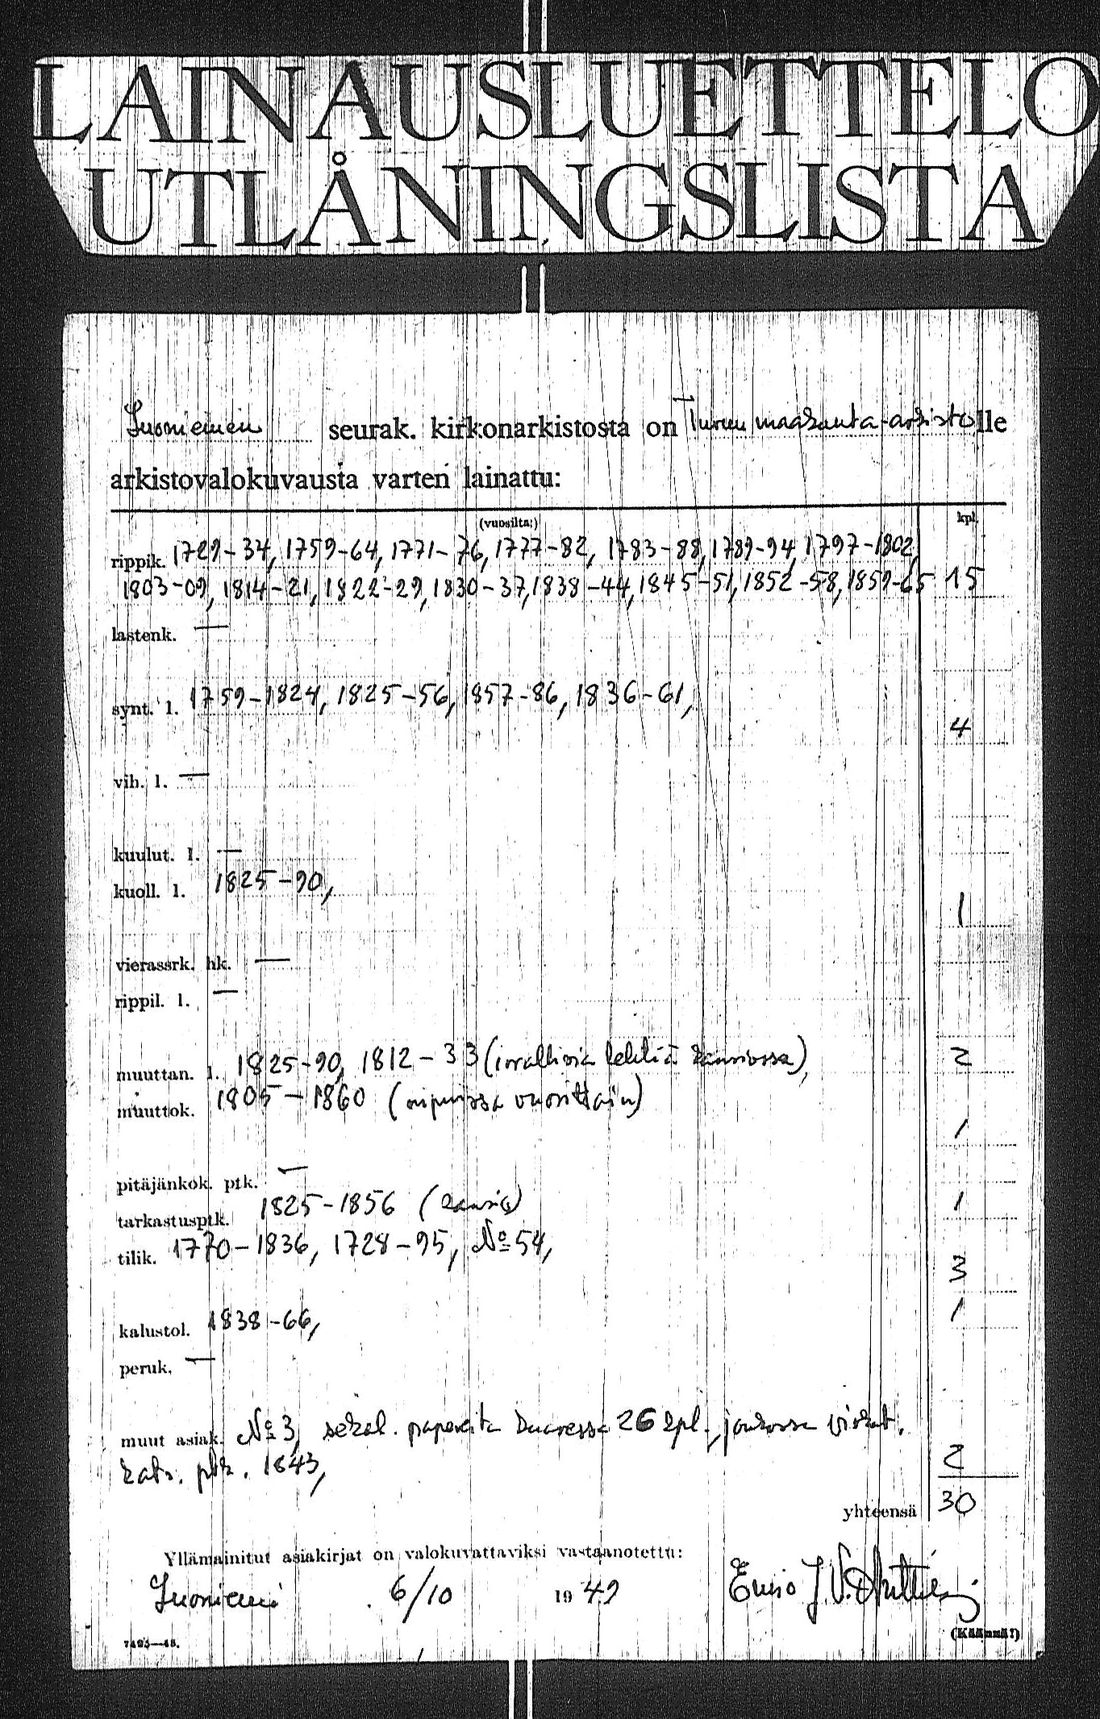 LAINAUSLUETTELO
UTLÅNINGSLISTA
Suoniemen seurak. kirkonarkistosta on Turun maakunta-arkistolle
arkistovalokuvausta varten lainattu:
(vuosilta:) kpl.
rippik. 1729-34, 1759-64, 1771-76, 1777-82, 1783-88, 1789-94, 1797-1802,
1803-09, 1814-21, 1822-29, 1830-37, 1838-44, 1845-51, 1852-58, 1859-65 15
lastenk. —
synt. l. 1759-1824, 1825-56, 1857-86, 1836-61,
4
vih. l. —
kuulut. l. —
kuoll. l. 1825-90,
1
vierassrk. hk. —
rippil. l. —
muuttan. l. 1825-90, 1812-33 (irrallisia lehtiä kansiossa), 2
muuttok. 1805-1860 (nipuissa vuosittain)
1
pitäjänkok. ptk. —
tarkastusptk. 1825-1856 (kansio) 1
tilik. 1770-1836, 1728-95, No 54,
3
kalustol. 1838-66, 1
peruk. —
muut asiak. No 3, sekal. papereita kuoressa 26 kpl., joukossa
ptk. 1843, 2
yhteensä 30
Yllämainitut asiakirjat on valokuvattaviksi vastaanotettu:
Suoniemi 6/10 1949
7495—48. (Käännä!)